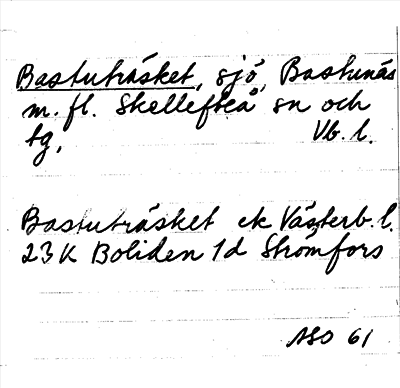 Bastuträsket, sjö, Bastunäs
m. fl. Skellefteå sn och
tg, Vb. l.
Bastuträsket ek Västerb. l.
23K Boliden 1d Strömfors
ASO 61